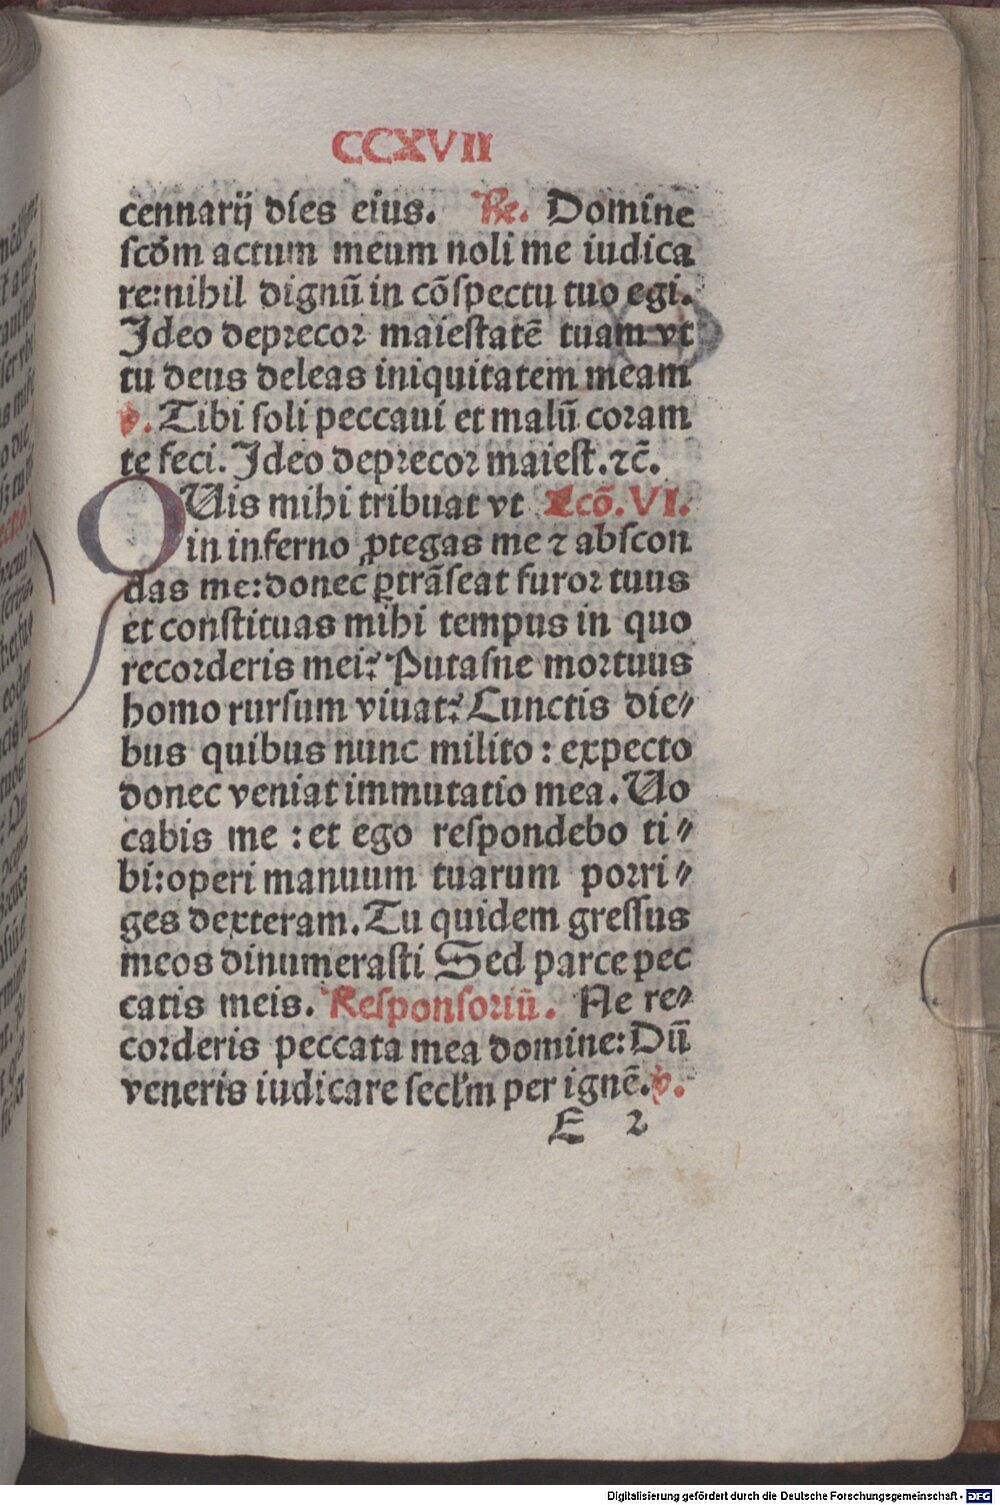 CCXVII
cennarij dies eius. ℟. Domine
ſcdm actum meum noli me iudica
re:nihil dignū in cōſpectu tuo egi.
Ideo deprecor maieſtatē tuam vt
tu deus deleas iniquitatem meam
℣. Tibi ſoli peccaui et malū coram
te feci. Ideo deprecor maieſt. ⁊c̄.
QUis mihi tribuat vt Lcō. VI.
in inferno ꝓtegas me ⁊ abſcon
das me: donec ꝑtrāſeat furor tuus
et conſtituas mihi tempus in quo
recorderis mei? Putaſne mortuus
homo rurſum viuat? Cunctis die⸗
bus quibus nunc milito : expecto
donec veniat immutatio mea. Uo
cabis me : et ego reſpondebo ti⸗
bi: operi manuum tuarum porri⸗
ges dexteram. Tu quidem greſſus
meos dinumeraſti Sed parce pec
catis meis. Reſponſoriū. Ne re⸗
corderis peccata mea domine: Dū
veneris iudicare ſecl'm per ignē. ℣.
E 2
Digitalisierung gefördert durch die Deutsche Forschungsgemeinschaft - DFG